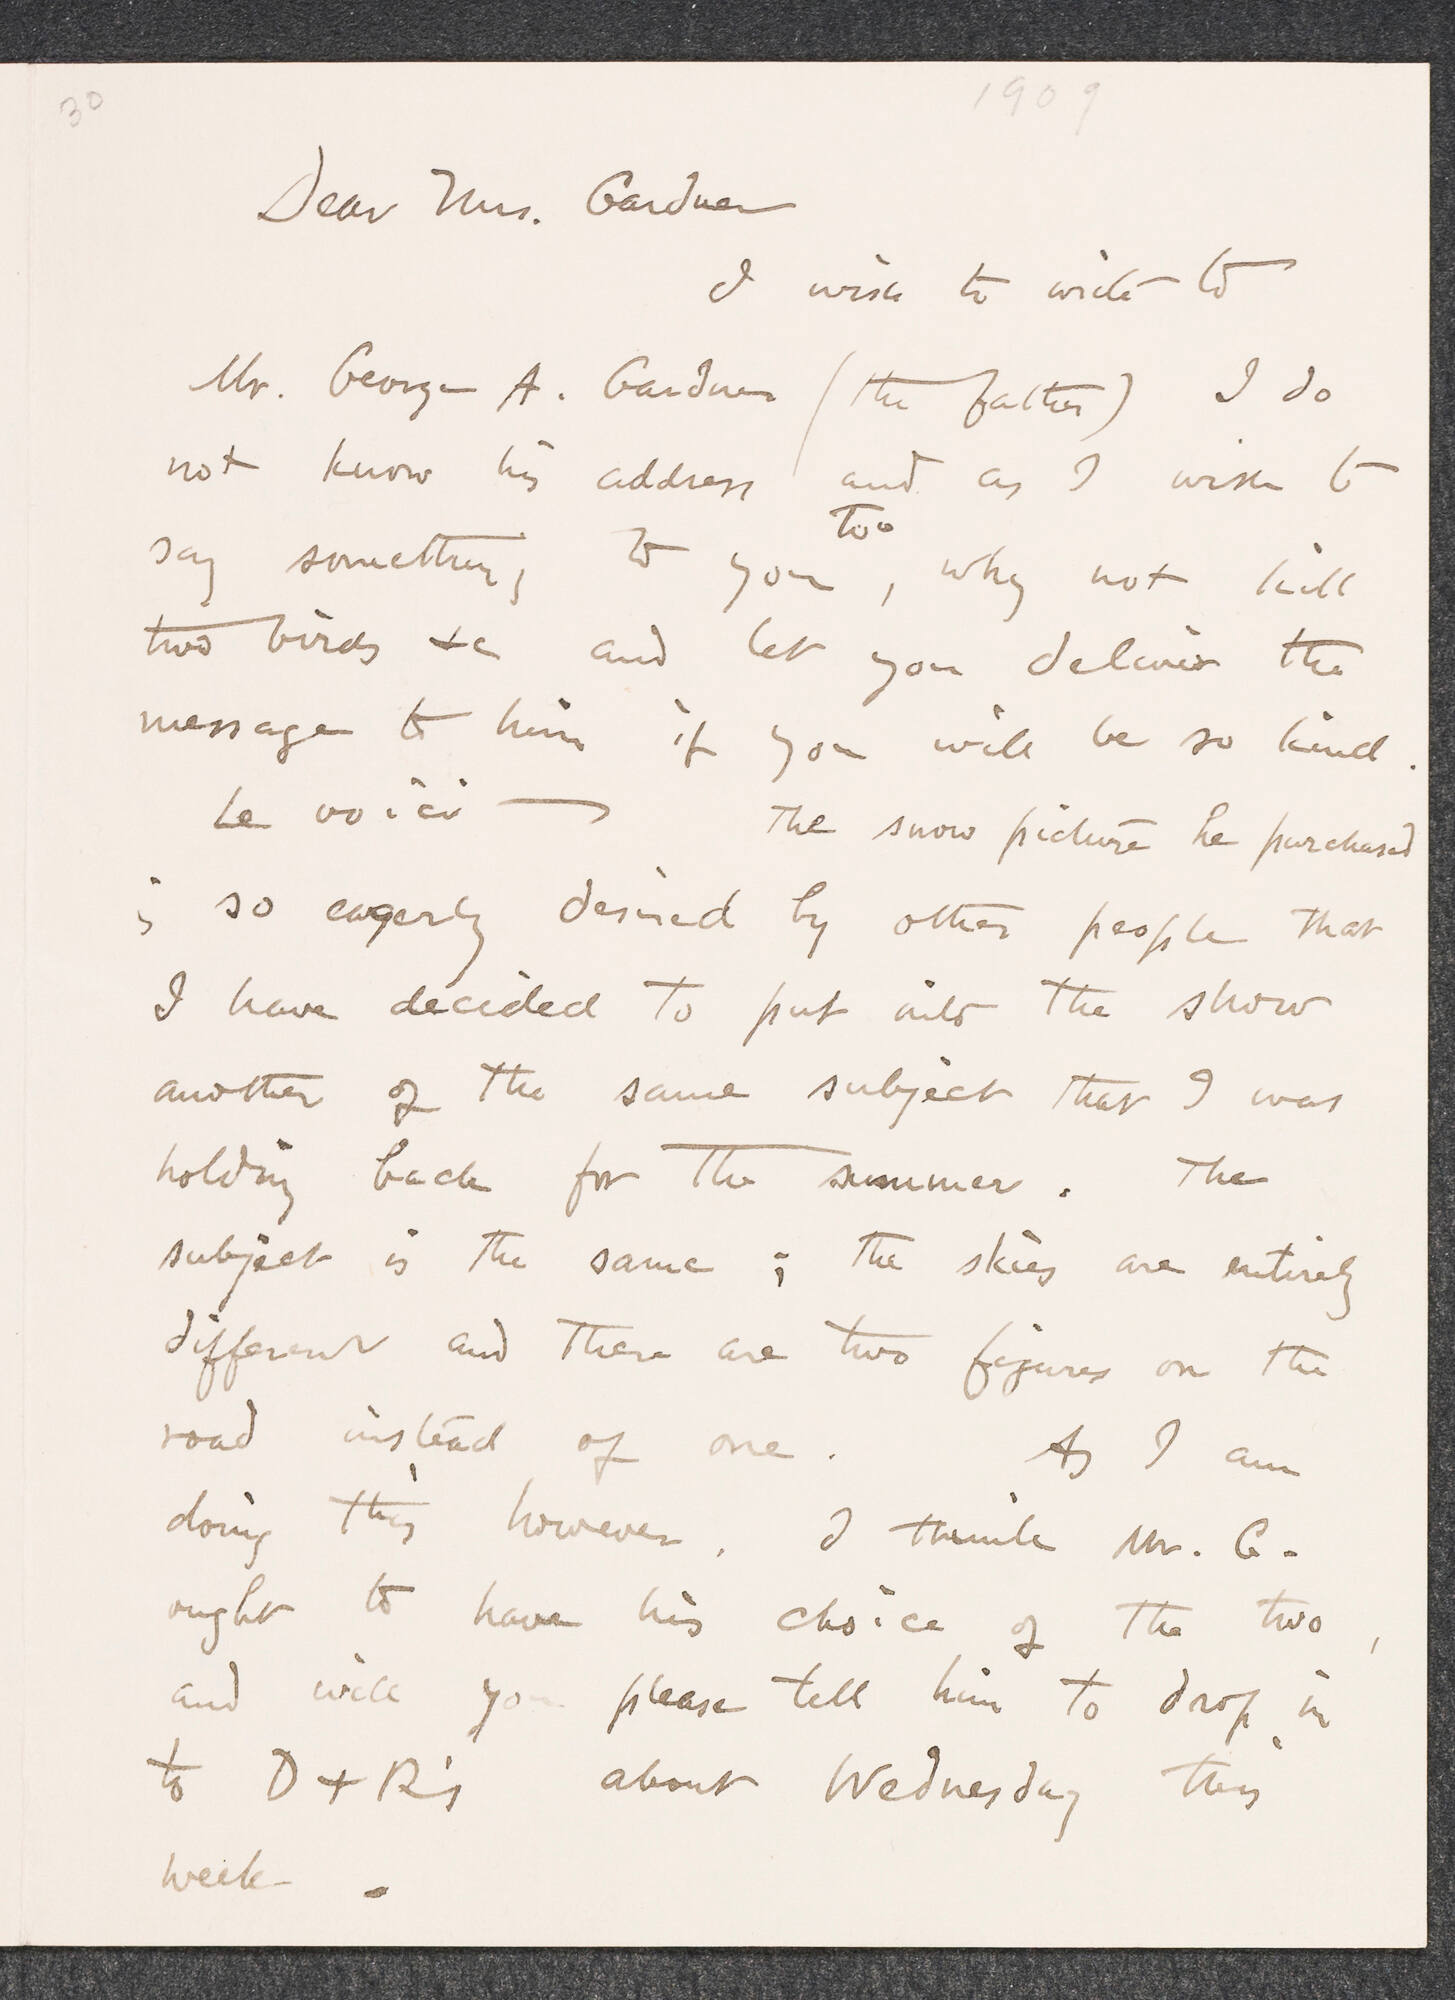 30
1909
Dear Mrs. Gardner
I wish to write to
Mr. George A. Gardner (the father) I do
not know his address and as I wish to
say something to you too, why not kill
two birds &c and let you deliver the
message to him if you will be so kind.
Le voici — The snow picture he purchased
is so eagerly desired by other people that
I have decided to put into the show
another of the same subject that I was
holding back for the summer. The
subject is the same; the skies are entirely
different and there are two figures on the
road instead of one. As I am
doing this however, I think Mr. G.
ought to have his choice of the two,
and will you please tell him to drop in
to D + R's about Wednesday this
week.